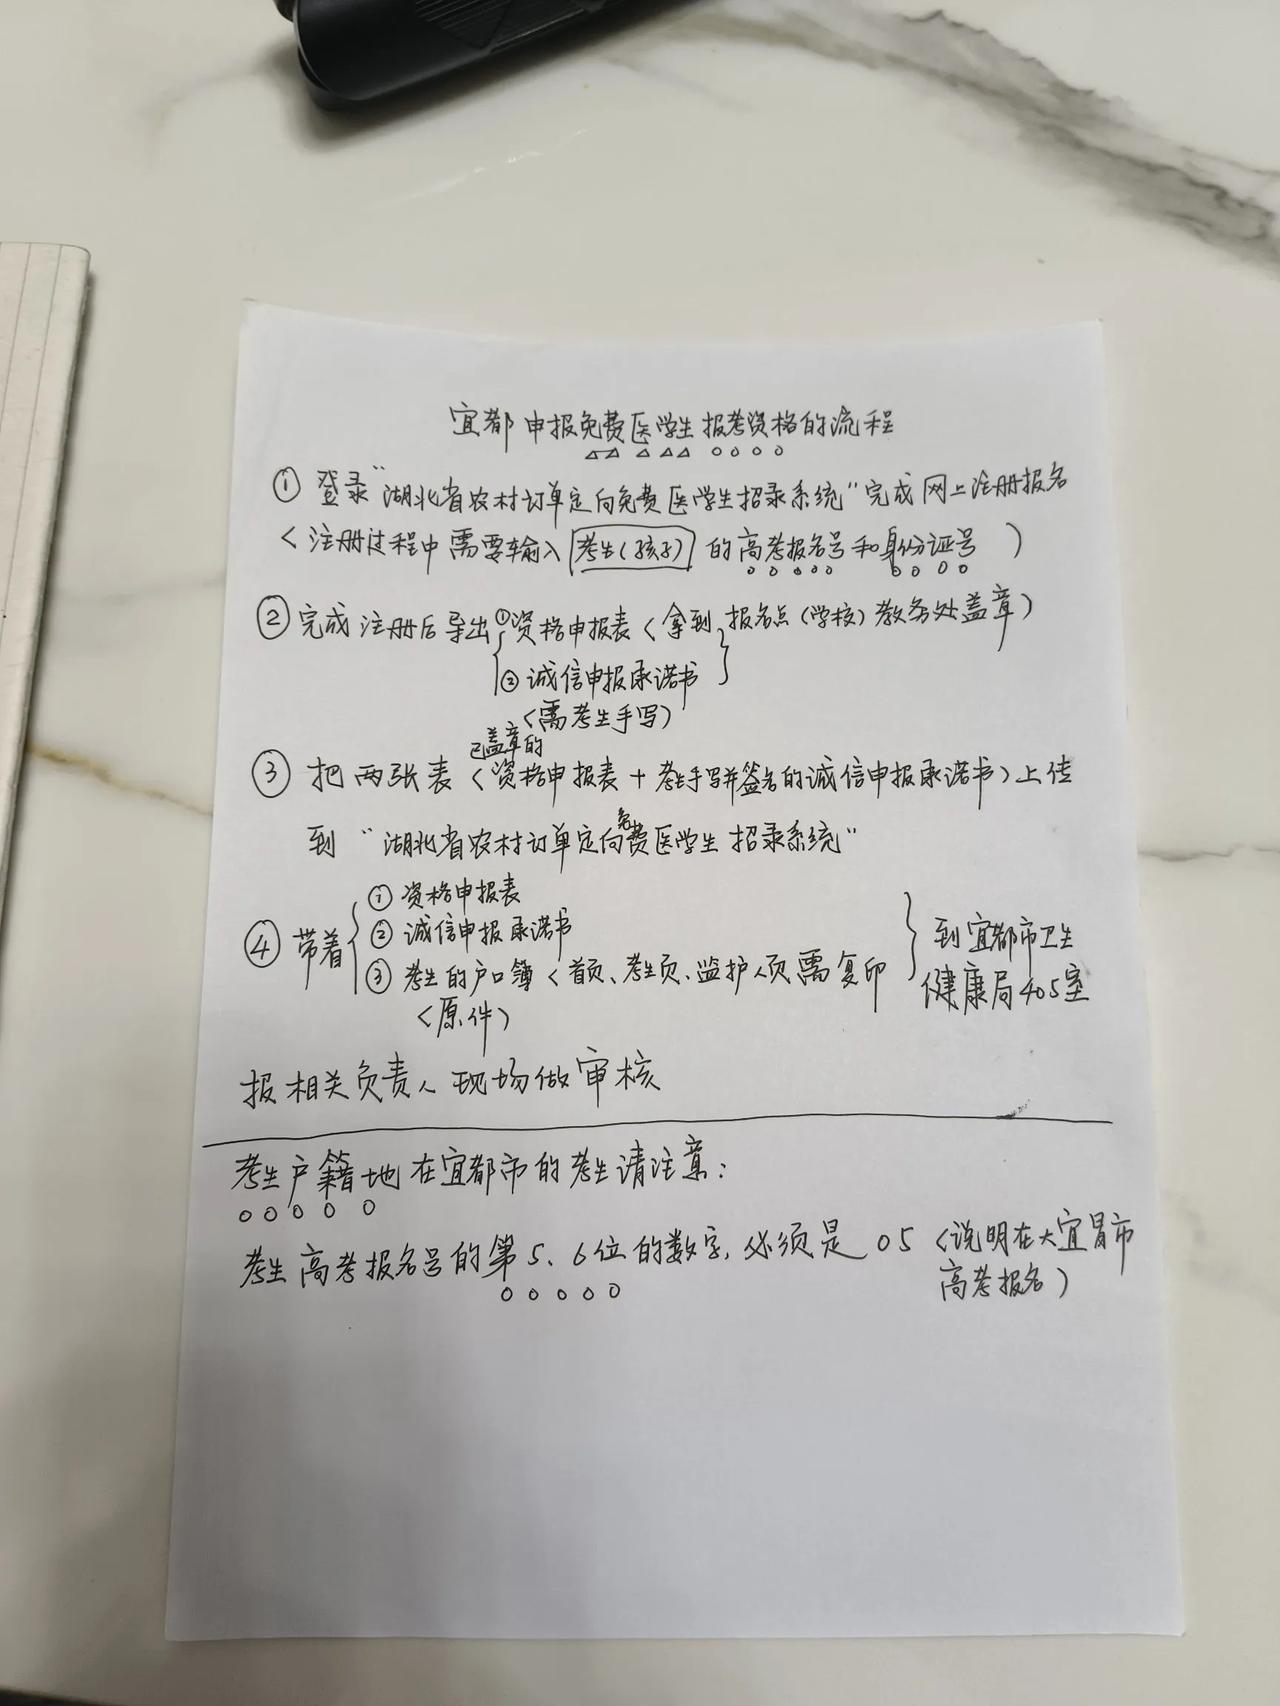 宜都申报免费医学生报考资格的流程
① 登录"湖北省农村订单定向免费医学生招录系统"完成网上注册报名
(注册过程中需要输入考生(孩子)的高考报名号和身份证号)
②完成注册后导出①资格申报表(拿到报名点(学校)教务处盖章)
②诚信申报承诺书
(需考生手写)
已盖章的
③ 把两张表(资格申报表+考生手写并签名的诚信申报承诺书)上传
到"湖北省农村订单定向免费医学生招录系统"
①资格申报表
②诚信申报承诺书
④带着
③考生的户口簿(首页、考生页、监护人页需复印
(原件)
到宜都市卫生
健康局405室
报相关负责人现场做审核
考生户籍地在宜都市的考生请注意:
考生高考报名号的第5、6位的数字,必须是05(说明在大宜昌市
高考报名)